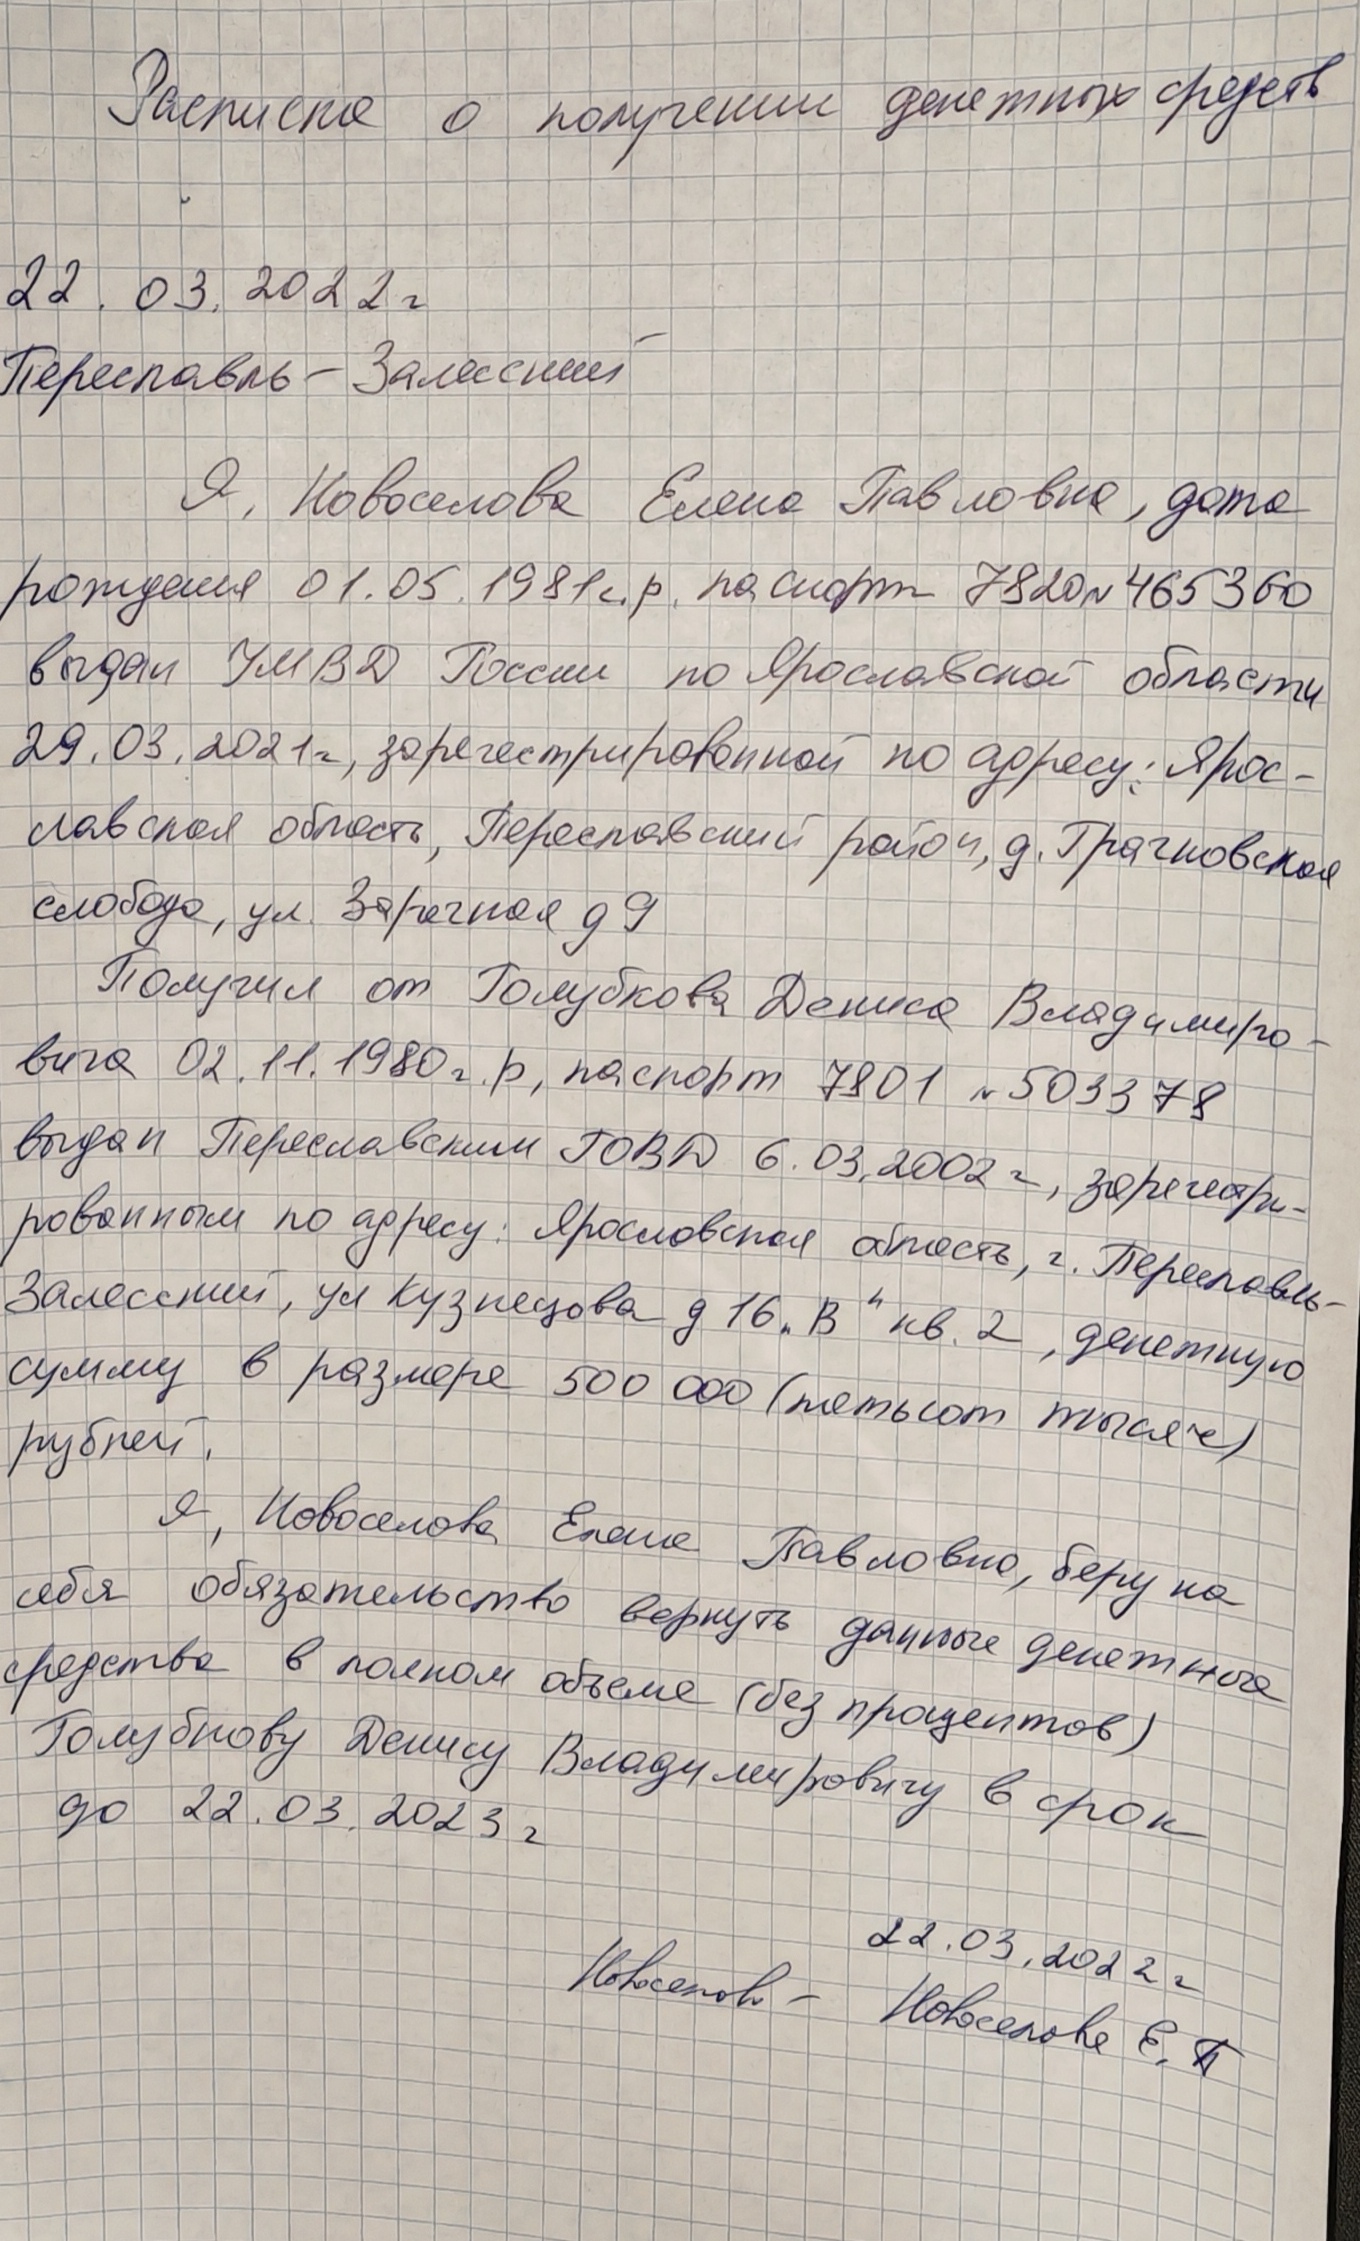 Расписка о получении денежных средств
22.03.2022г
Переславль-Залесский
Я, Новоселова Елена Павловна, дата
рождения 01.05.1981г.р. паспорт 7820 N 465360
выдан УМВД России по Ярославской области
29.03.2021г, зарегестрированной по адресу: Ярос-
лавская область, Переславский район, д. Грачковская
слобода, ул. Заречная д 9
Получил от Голубкова Дениса Владимиро-
вича 02.11.1980г.р, паспорт 7801 N 503378
выдан Переславским ГОВД 6.03.2002г, зарегестри-
рованным по адресу: Ярославская область, г. Переславль-
Залесский, ул Кузнецова д 16 „В“ кв. 2, денежную
сумму в размере 500 000 (пятьсот тысяч)
рублей.
Я, Новоселова Елена Павловна, беру на
себя обязательство вернуть данные денежные
средства в полном объеме (без процентов)
Голубкову Денису Владимировичу в срок
до 22.03.2023г
22.03.2022г
Новоселова - Новоселова Е.П